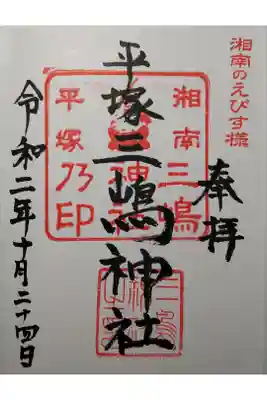 湘南のえびす様
奉拝
平塚三嶋神社
令和二年十月二十四日
湘南三嶋
平塚乃印